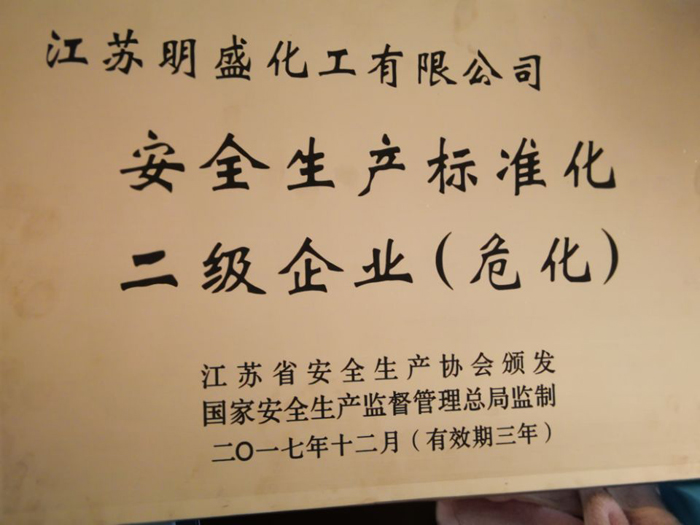 江苏明盛化工有限公司
安全生产标准化
二级企业(危化)
江苏省安全生产协会颁发
国家安全生产监督管理总局监制
二〇一七年十二月(有效期三年)